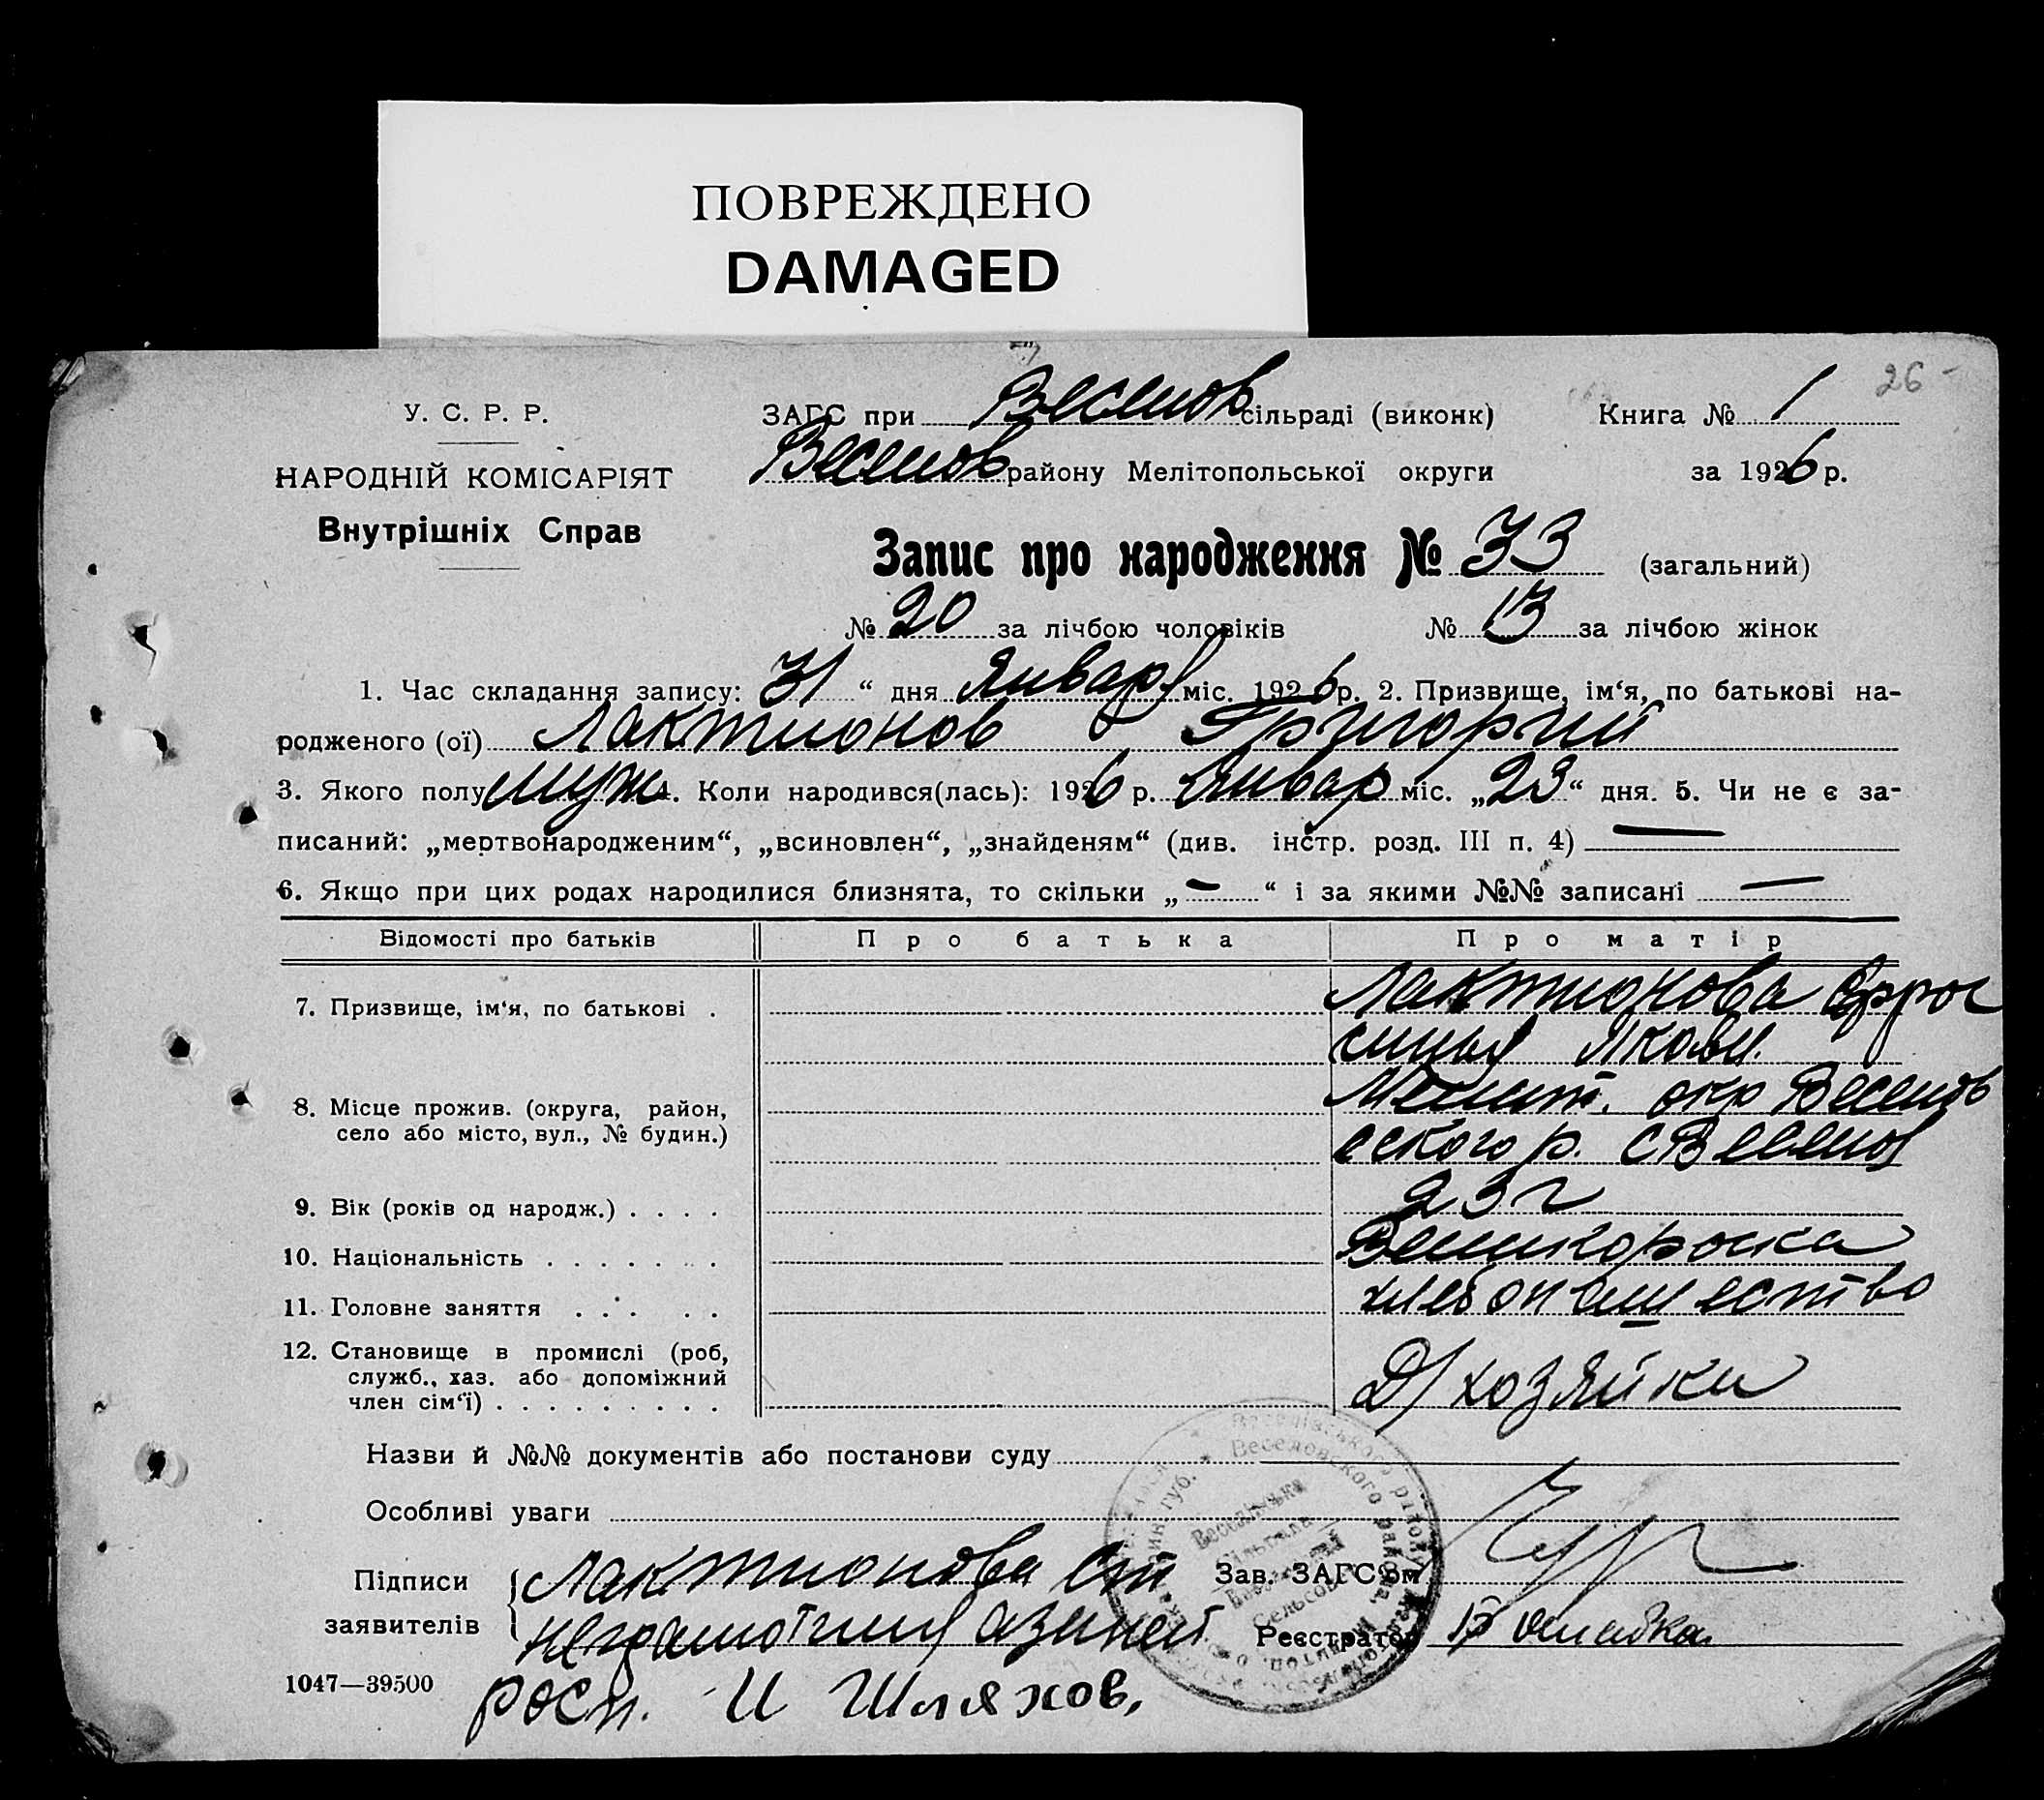 ПОВРЕЖДЕНО
DAMAGED
26
У. С. Р. Р.
НАРОДНІЙ КОМІСАРІЯТ
Внутрішніх Справ
ЗАГС при Веселов сільраді (виконк) Книга № 1
Веселов району Мелітопольської округи за 1926 р.
Запис про народження № 33 (загальний)
№ 20 за лічбою чоловіків № 13 за лічбою жінок
1. Час складання запису: 31 “ дня Январ міс. 1926 р. 2. Призвище, ім‘я, по батькові на-
родженого (ої) Лактионов Григорий
3. Якого полу муж 4. Коли народився(лась): 1926 р. Январ міс. „23“ дня. 5. Чи не є за-
писаний: „мертвонародженим“, „всиновлен“, „знайденям“ (див. інстр. розд. III п. 4) —
6. Якщо при цих родах народилися близнята, то скільки „—“ і за якими №№ записані —
Відомості про батьків Про батька Про матір
7. Призвище, ім‘я, по батькові . Лактионова Ефро
синья Яковл.
8. Місце прожив. (округа, район, Мелит. окр Веселов
село або місто, вул., № будин.) ского р. с Веселов
9. Вік (років од народж.) . . . . 23 г
10. Національність . . . . . . . Великороска
11. Головне заняття . . . . . хлебопашество
12. Становище в промислі (роб,
служб., хаз. або допоміжний Д/хозяйки
член сім‘ї) . . . . . . . . .
Назви й №№ документів або постанови суду
Особливі уваги
Підписи Лактионова Зав. ЗАГС‘ом
заявителів неграмотная а за ней Реєстратор
1047—39500 росп. И Шляхов.